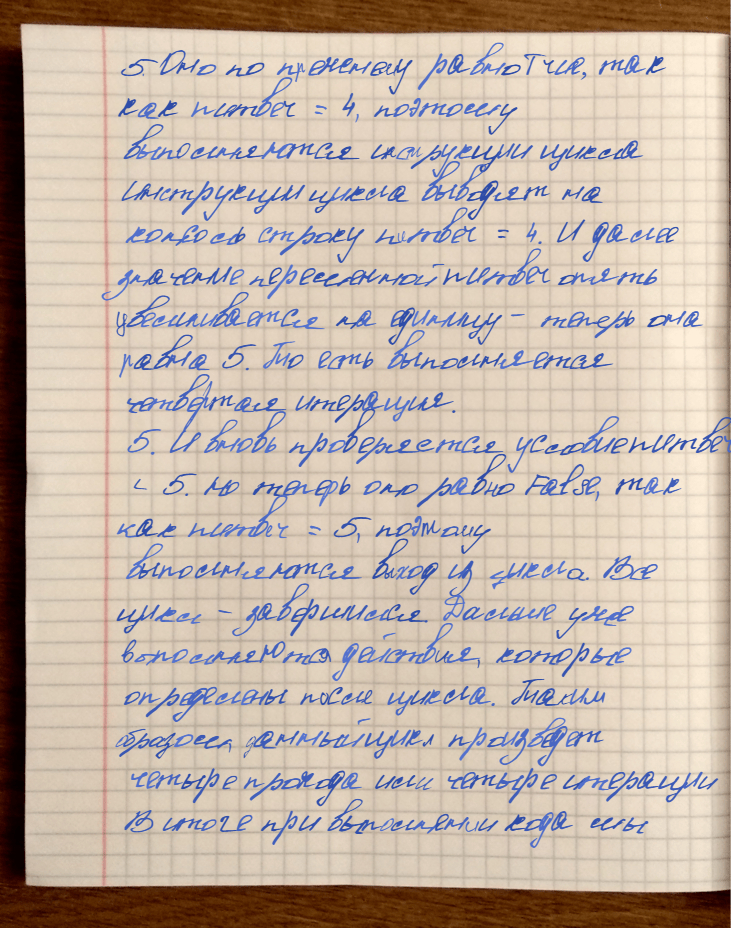 5. Оно по прежнему равно True, так
как number = 4, поэтому
выполняются инструкции цикла
инструкции цикла выводят на
консось строку number = 4. И далее
значение переменной number опять
увеличивается на единицу - теперь она
равна 5. То есть выполняется
четвертая итерация.
5. И вновь проверяется условие number
< 5. но теперь оно равно False, так
как number = 5, поэтому
выполняются выход из цикла. Все
цикл - завершился. Дальше уже
выполняются действия, которые
определены после цикла. Таким
образом, данный цикл произведет
четыре прохода или четыре итерации
В итоге при выполнении кода мы